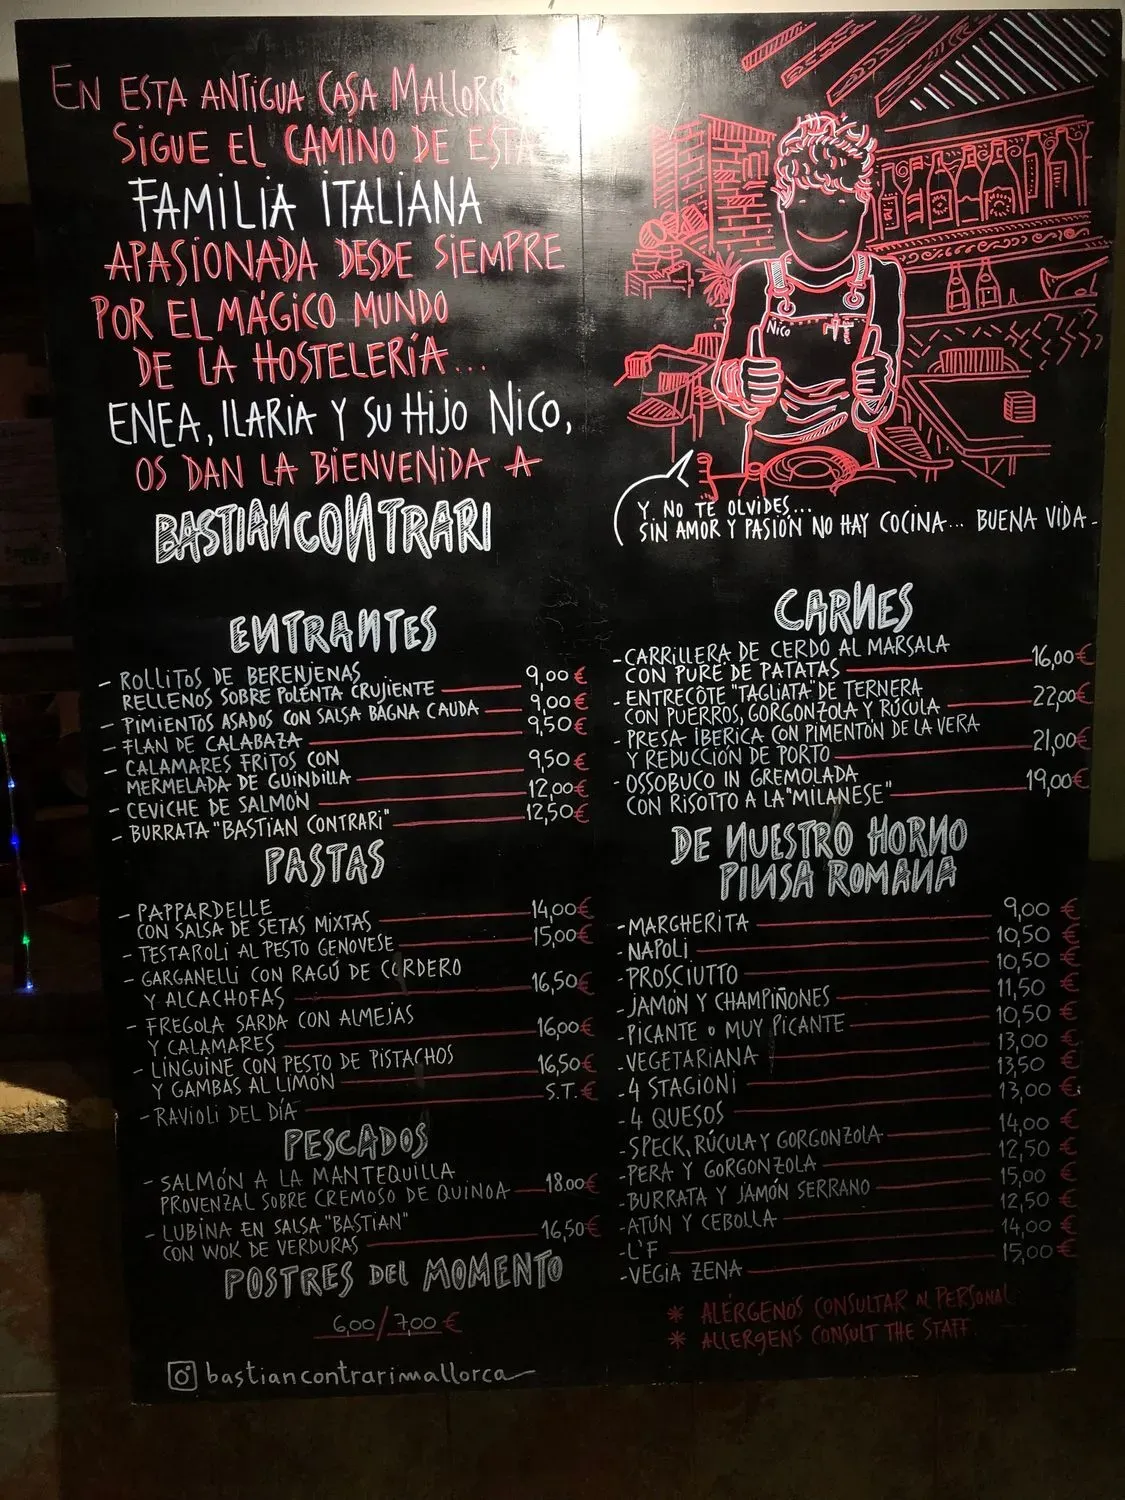 EN ESTA ANTIGUA CASA
SIGUE EL CAMINO DE ESTA
FAMILIA ITALIANA
APASIONADA DESDE SIEMPRE
POR EL MÁGICO MUNDO
DE LA HOSTELERÍA...
ENEA, ILARIA Y SU HIJO NICO,
OS DAN LA BIENVENIDA A
BASTIANCONTRARI
Nico
Y NO TE OLVIDES...
SIN AMOR Y PASIÓN NO HAY COCINA... BUENA VIDA-
ENTRANTES
- ROLLITOS DE BERENJENAS
RELLENOS SOBRE POLENTA CRUJIENTE 9,00 €
- PIMIENTOS ASADOS CON SALSA BAGNA CAUDA 9,00 €
- FLAN DE CALABAZA 9,50 €
- CALAMARES FRITOS CON
MERMELADA DE GUINDILLA 9,50 €
- CEVICHE DE SALMÓN 12,00 €
- BURRATA "BASTIAN CONTRARI" 12,50 €
PASTAS
- PAPPARDELLE
CON SALSA DE SETAS MIXTAS 14,00 €
- TESTAROLI AL PESTO GENOVESE 15,00 €
- GARGANELLI CON RAGÚ DE CORDERO
Y ALCACHOFAS 16,50 €
- FREGOLA SARDA CON ALMEJAS
Y CALAMARES 16,00 €
- LINGUINE CON PESTO DE PISTACHOS
Y GAMBAS AL LIMÓN 16,50 €
- RAVIOLI DEL DÍA S.T. €
PESCADOS
- SALMÓN A LA MANTEQUILLA
PROVENZAL SOBRE CREMOSO DE QUINOA 18.00 €
- LUBINA EN SALSA "BASTIAN"
CON WOK DE VERDURAS 16,50 €
POSTRES DEL MOMENTO
6,00 / 7,00 €
bastiancontrarimallorca
CARNES
- CARRILLERA DE CERDO AL MARSALA
CON PURÉ DE PATATAS 16,00 €
- ENTRECÔTE "TAGLIATA" DE TERNERA
CON PUERROS, GORGONZOLA Y RÚCULA 22,00 €
- PRESA IBERICA CON PIMENTÓN DE LA VERA
Y REDUCCIÓN DE PORTO 21,00 €
- OSSOBUCO IN GREMOLADA
CON RISOTTO A LA "MILANESE" 19,00 €
DE NUESTRO HORNO
PINSA ROMANA
- MARGHERITA 9,00 €
- NAPOLI 10,50 €
- PROSCIUTTO 10,50 €
- JAMÓN Y CHAMPIÑONES 11,50 €
- PICANTE O MUY PICANTE 10,50 €
- VEGETARIANA 13,00 €
- 4 STAGIONI 13,50 €
- 4 QUESOS 13,00 €
- SPECK, RÚCULA Y GORGONZOLA 14,00 €
- PERA Y GORGONZOLA 12,50 €
- BURRATA Y JAMÓN SERRANO 15,00 €
- ATÚN Y CEBOLLA 12,50 €
- L'F 14,00 €
- VEGIA ZENA 15,00 €
* ALÉRGENOS CONSULTAR AL PERSONAL
* ALLERGENS CONSULT THE STAFF